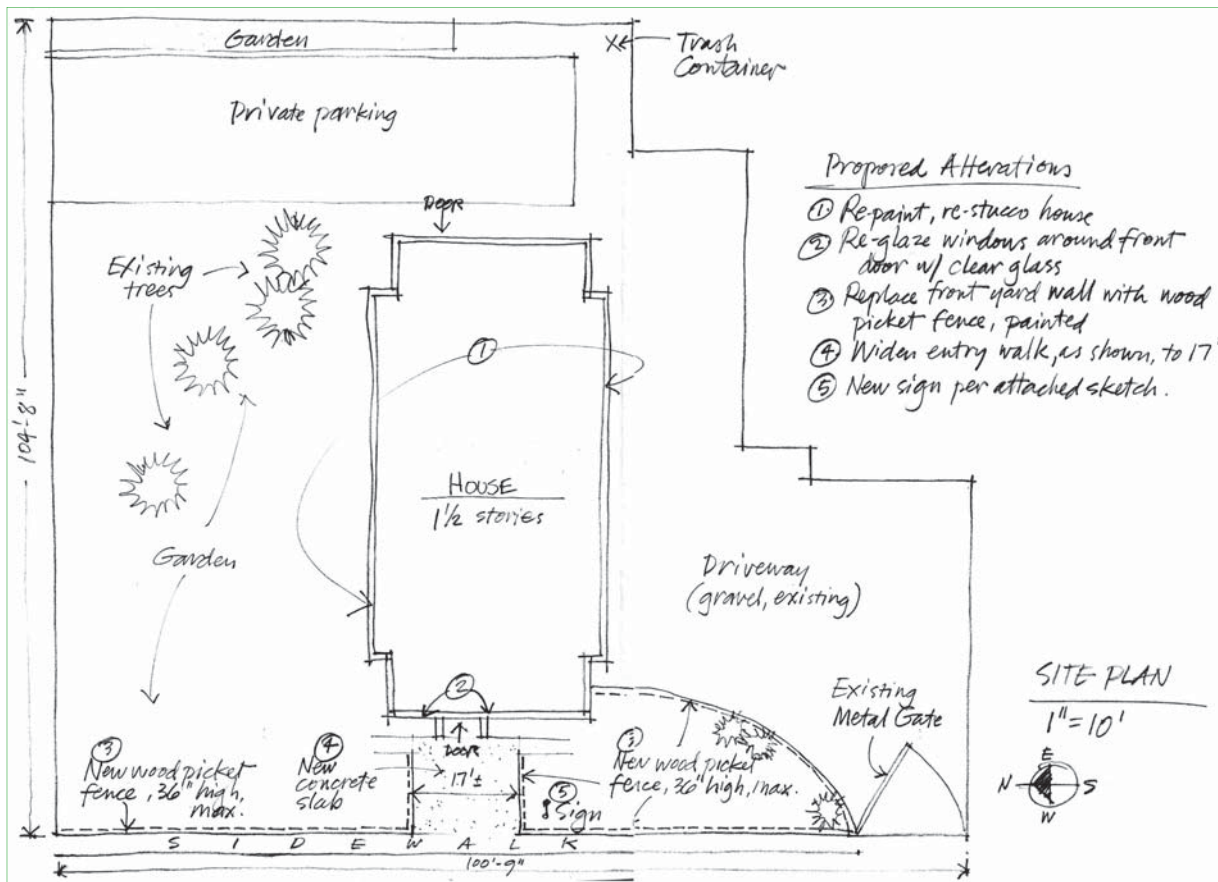 Garden
Trash
Container
Private parking
Proposed Alterations
① Re-paint, re-stucco house
② Re-glaze windows around front
door w/ clear glass
③ Replace front yard wall with wood
picket fence, painted
④ Widen entry walk, as shown, to 17'
⑤ New sign per attached sketch.
DOOR
Existing
trees
①
104'-8"
HOUSE
1 1/2 stories
Garden
Driveway
(gravel, existing)
②
Existing
Metal Gate
SITE PLAN
1" = 10'
E
N
S
W
③
New wood picket
fence, 36" high,
max.
④
New
concrete
slab
DOOR
17'±
③
New wood picket
fence, 36" high, max.
⑤
Sign
SIDEWALK
100'-9"